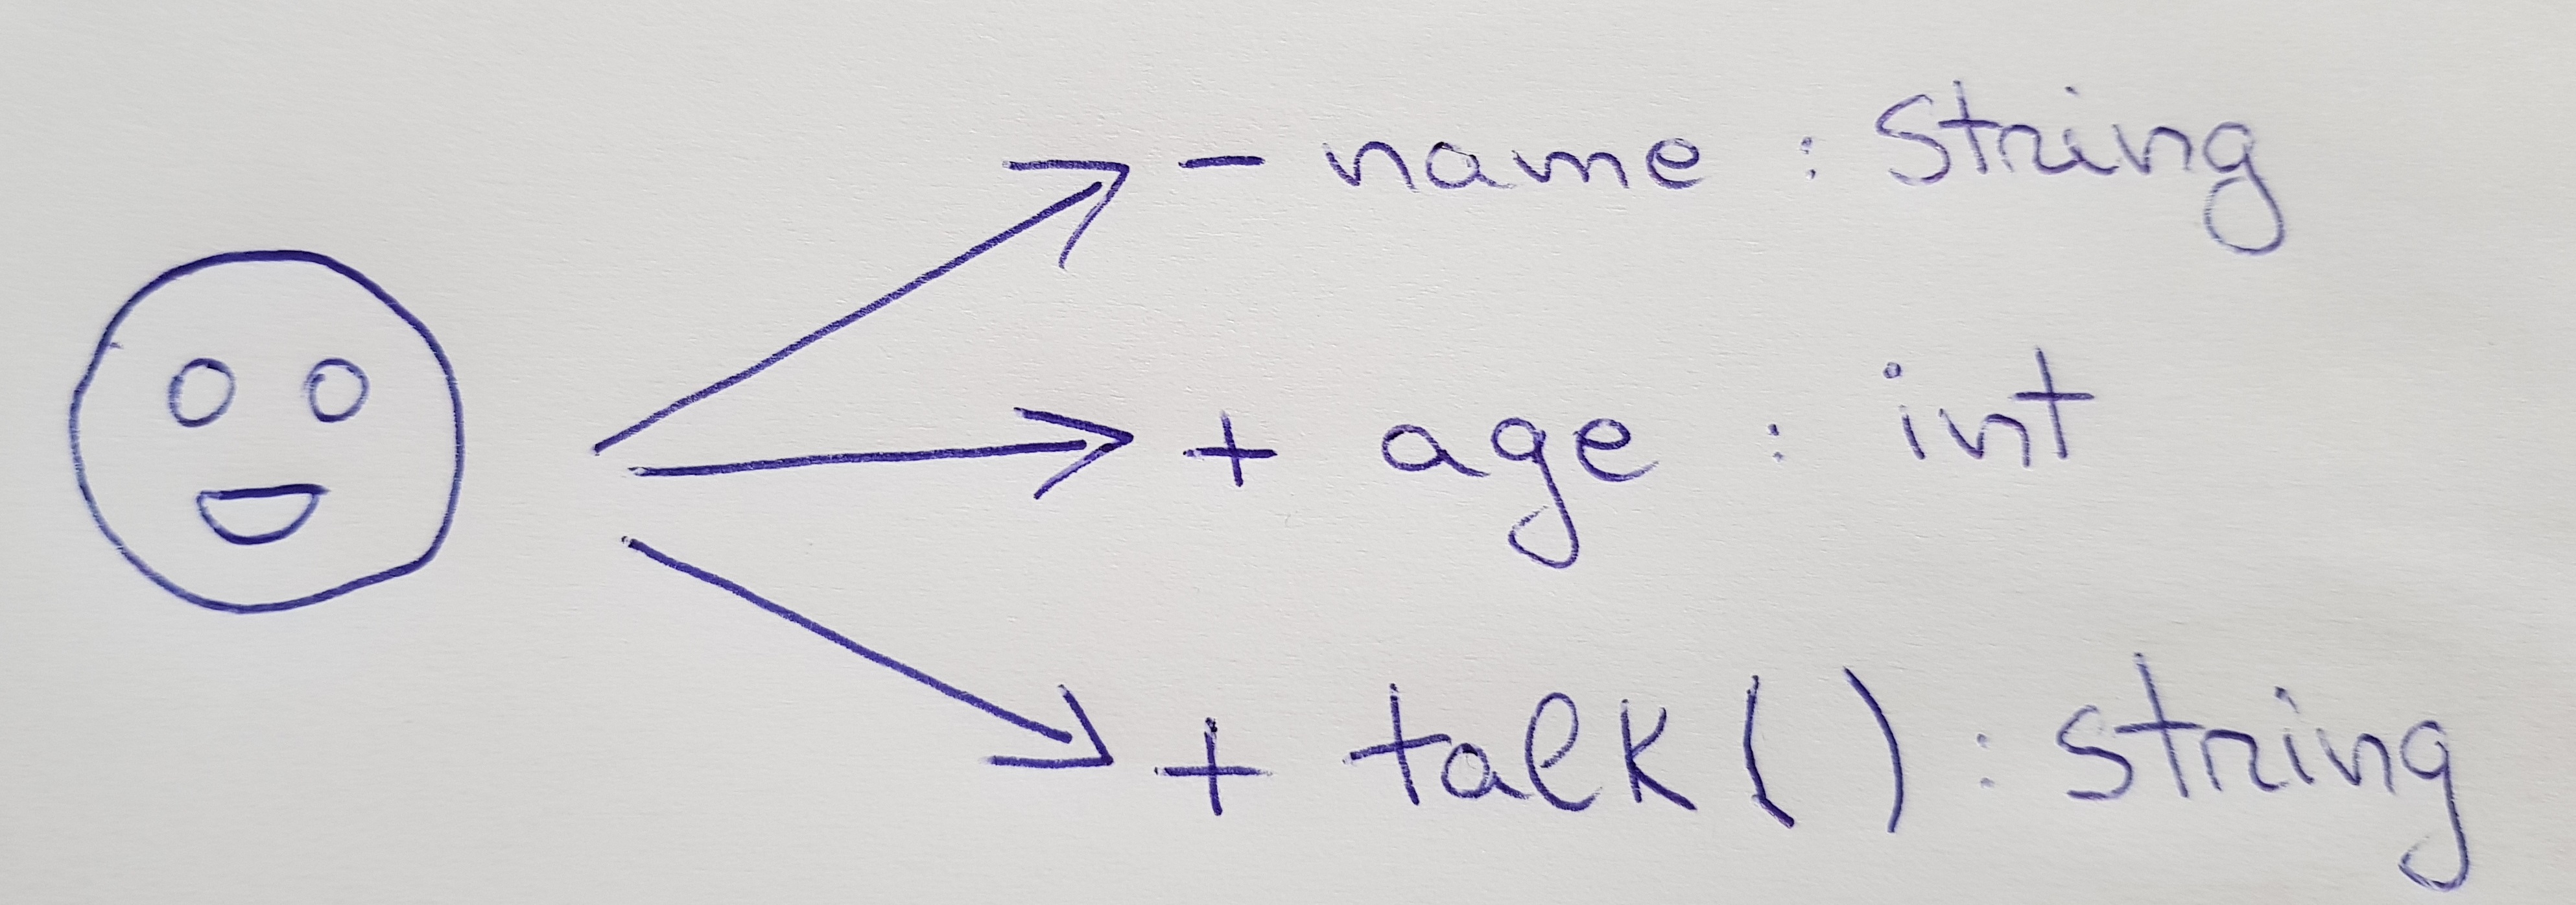 - name : String
+ age : int
+ talk ( ) : string